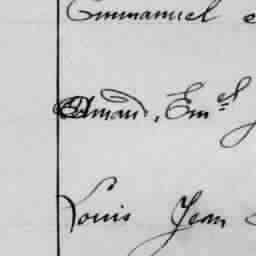 Emmanuel
Amand, Em.el
Louis Jean